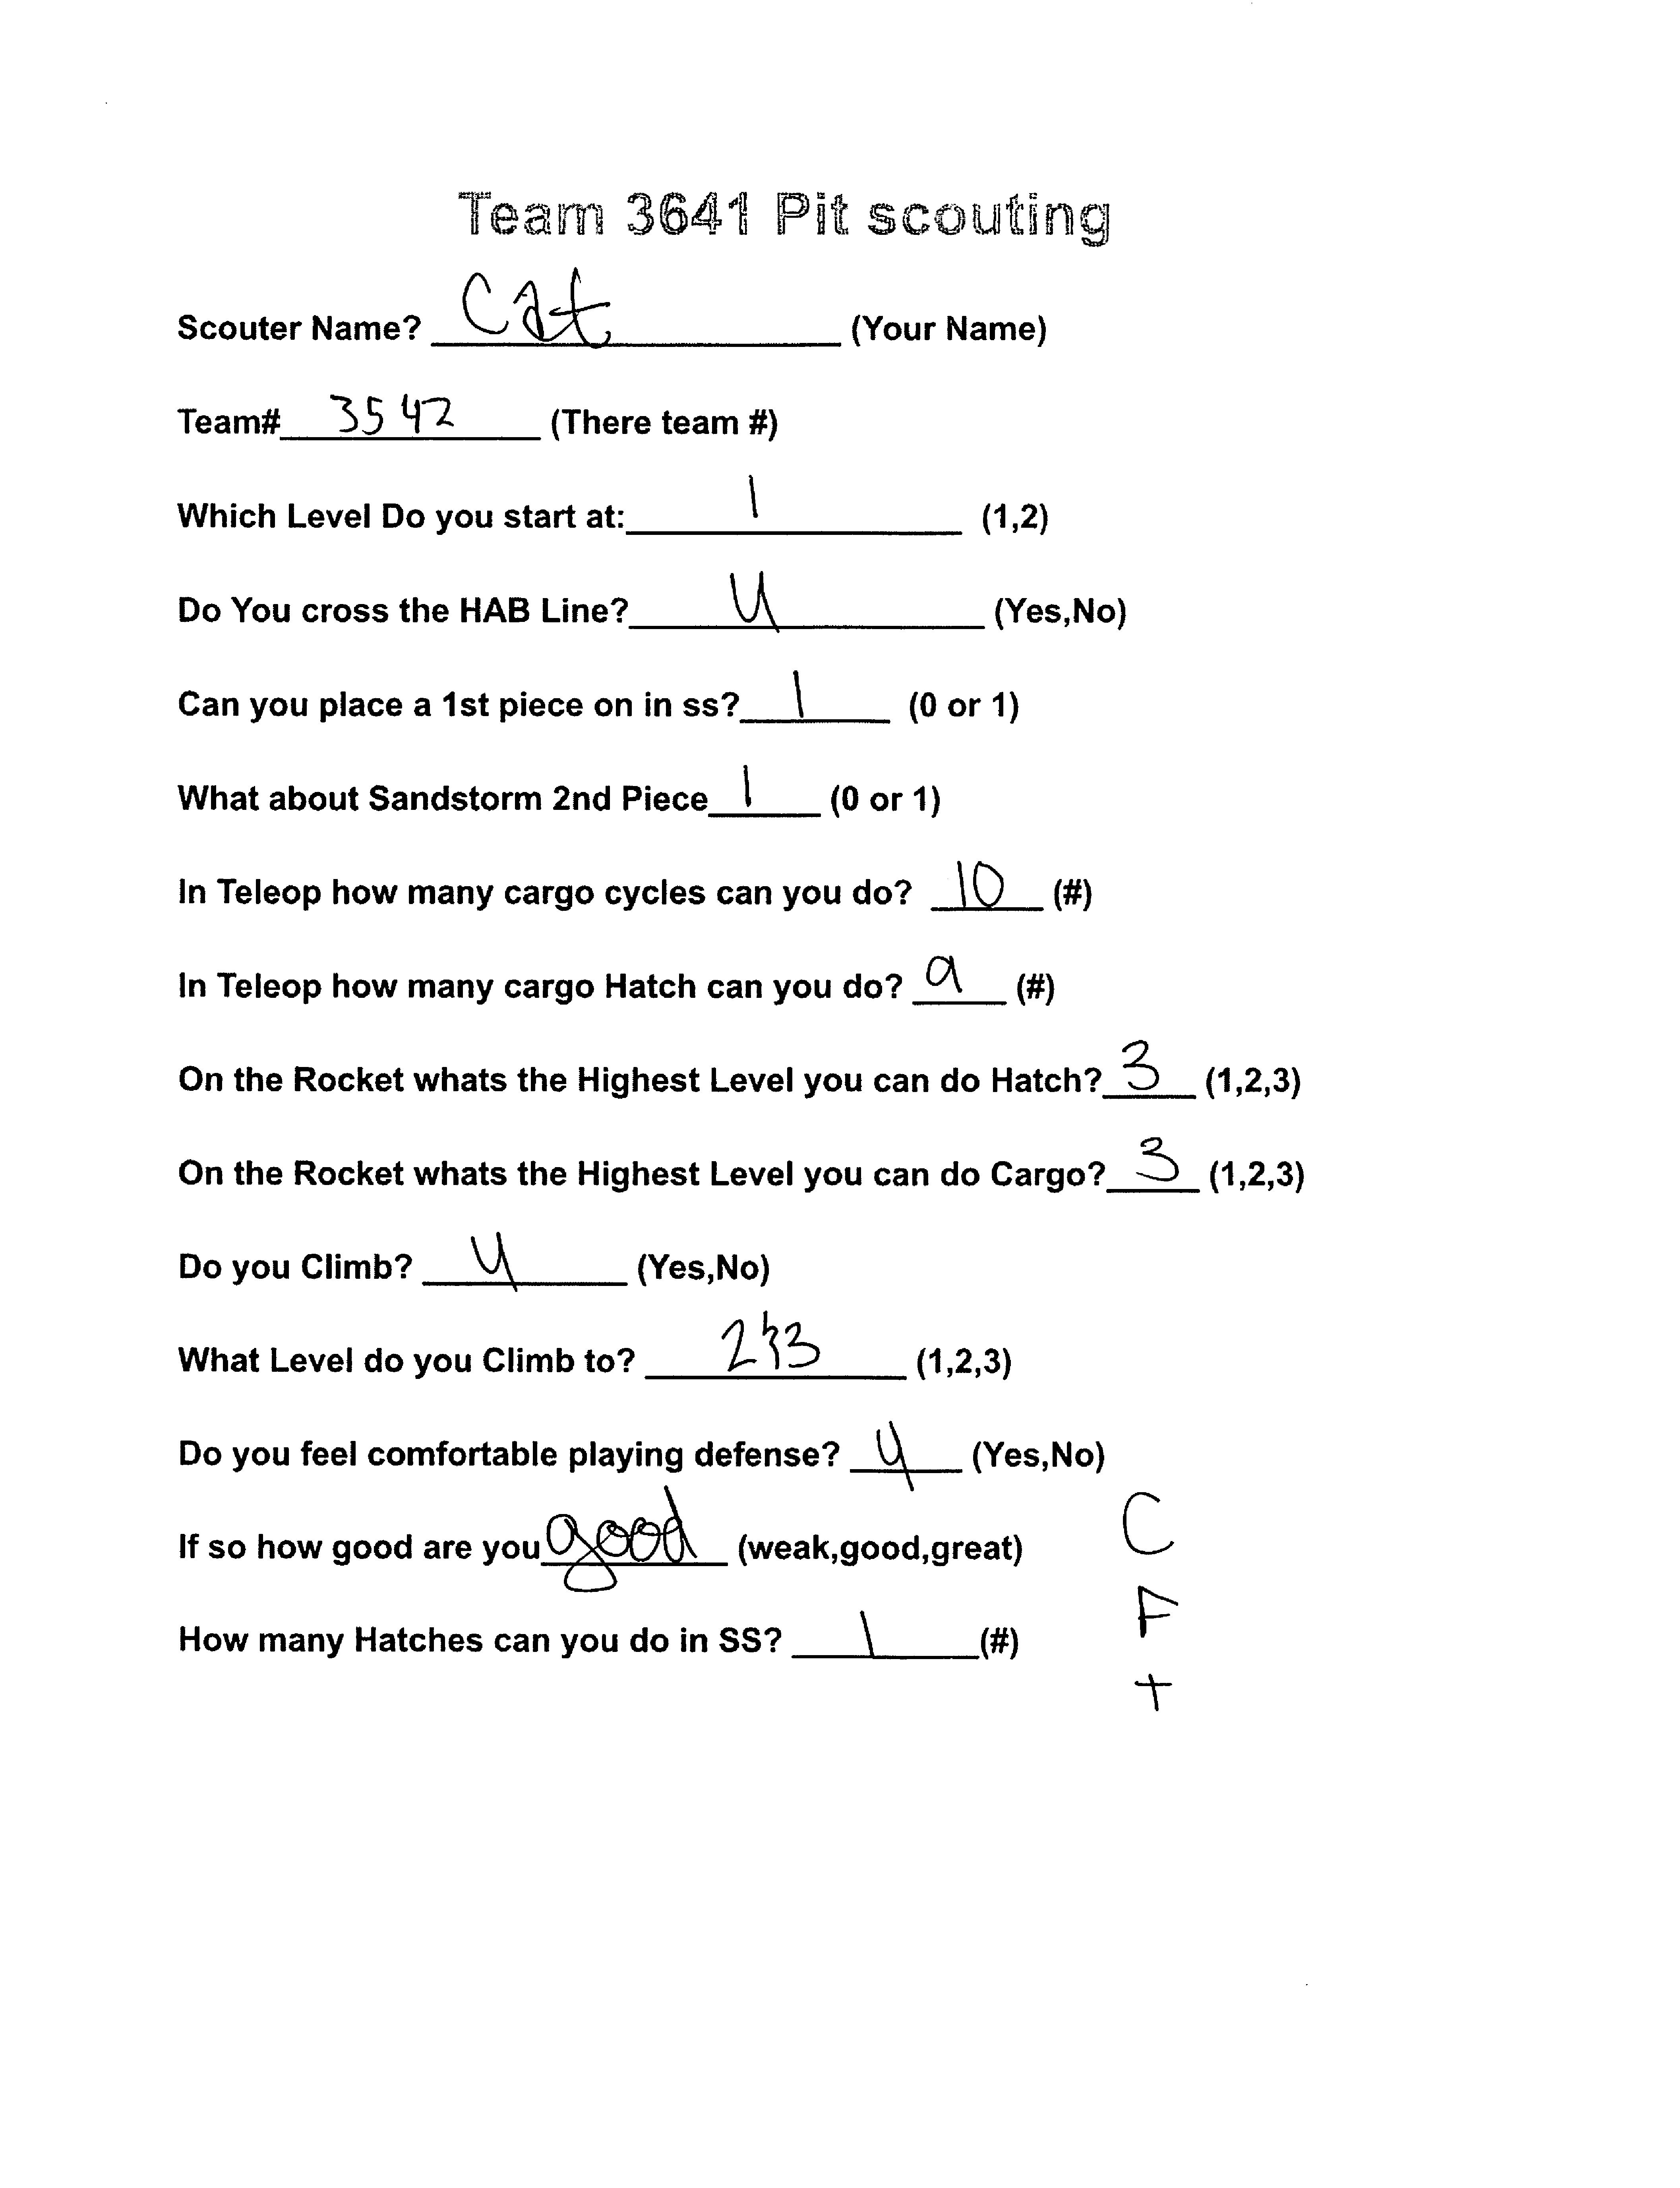 Team 3641 Pit scouting
Scouter Name? Cat (Your Name)
Team# 3542 (There team #)
Which Level Do you start at: 1 (1,2)
Do You cross the HAB Line? y (Yes,No)
Can you place a 1st piece on in ss? 1 (0 or 1)
What about Sandstorm 2nd Piece 1 (0 or 1)
In Teleop how many cargo cycles can you do? 10 (#)
In Teleop how many cargo Hatch can you do? 9 (#)
On the Rocket whats the Highest Level you can do Hatch? 3 (1,2,3)
On the Rocket whats the Highest Level you can do Cargo? 3 (1,2,3)
Do you Climb? y (Yes,No)
What Level do you Climb to? 2&3 (1,2,3)
Do you feel comfortable playing defense? y (Yes,No)
If so how good are you good (weak,good,great)
How many Hatches can you do in SS? 1 (#)
C
F
+